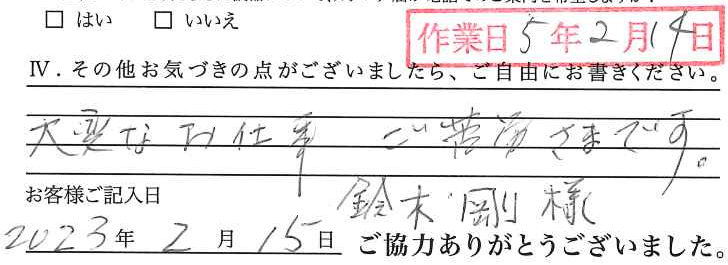 □ はい □ いいえ
作業日 5年2月14日
Ⅳ．その他お気づきの点がございましたら、ご自由にお書きください。
大変なお仕事 ご苦労さまです。
お客様ご記入日 鈴木 剛 様
2023年 2月 15日 ご協力ありがとうございました。